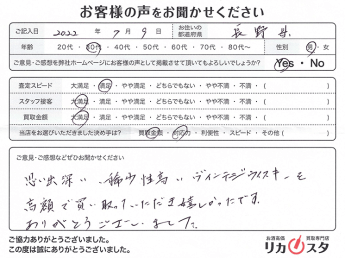 お客様の声をお聞かせください
ご記入日 2022 年 7 月 9 日 お住いの都道府県 長野県
年齢 20代・30代・40代・50代・60代・70代・80代〜 性別 男・女
ご意見・ご感想を弊社ホームページにお客様の声として掲載させて頂いてもよろしいでしょうか? Yes・No
査定スピード 大満足・満足・やや満足・どちらでもない・やや不満・不満・( )
スタッフ接客 大満足・満足・やや満足・どちらでもない・やや不満・不満・( )
買取金額 大満足・満足・やや満足・どちらでもない・やや不満・不満・( )
当店をお選びいただきました決め手は? 買取金額・対応力・利便性・スピード・その他( )
ご意見・ご感想などぜひお聞かせください
思い出深い稀少性高いヴィンテージウイスキーを
高額で買い取っていただき嬉しかったです。
ありがとうございました。
ご協力ありがとうございました。
この度は誠にありがとうございました。
お酒高価買取専門店
リカスタ